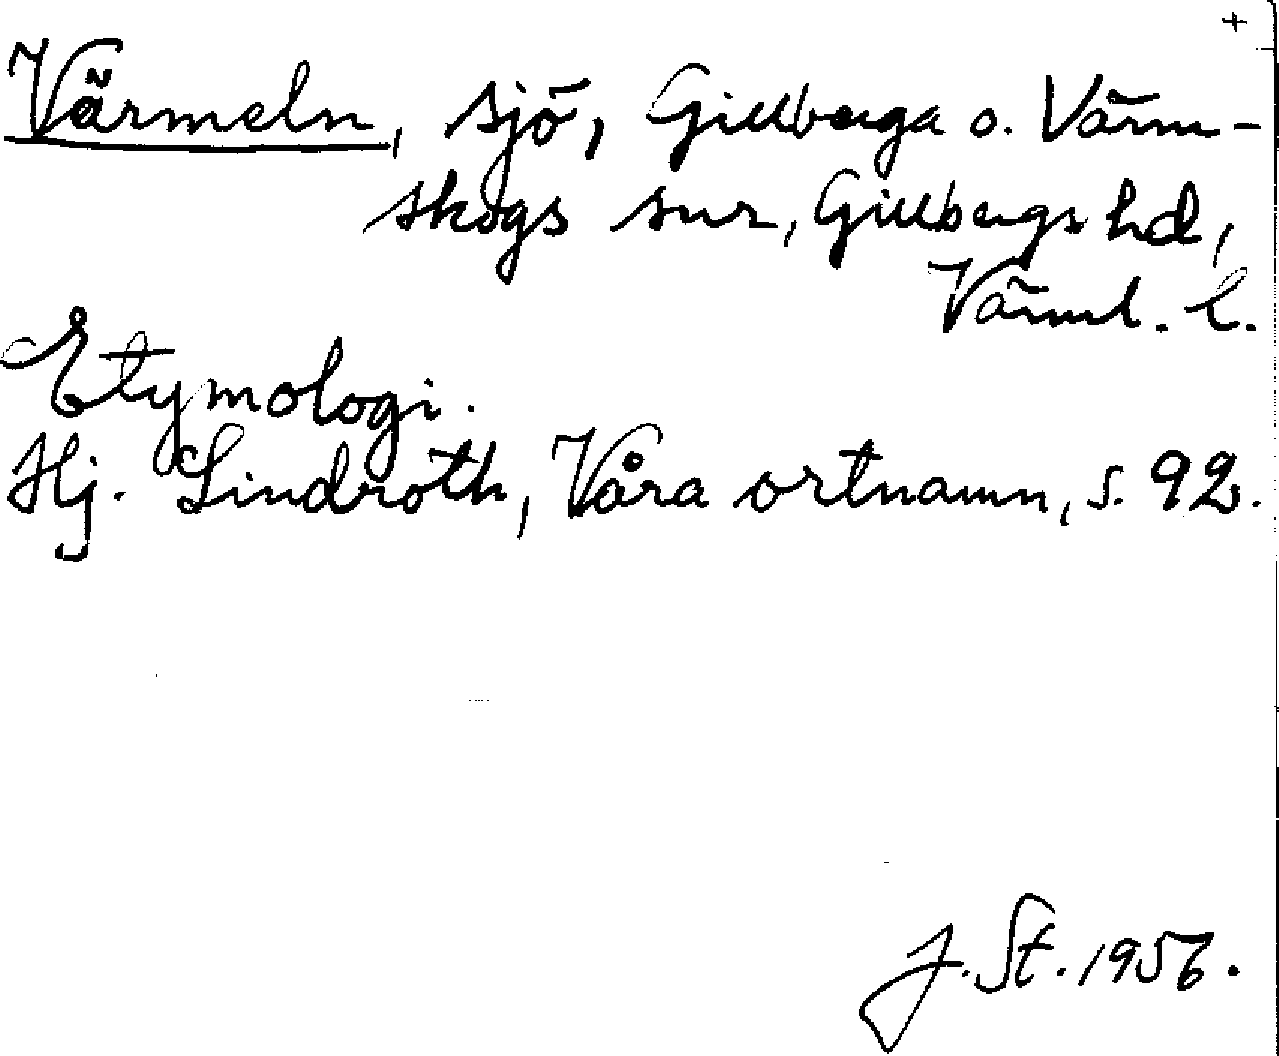 +
Värmeln, sjö, Gillberga o. Värm-
skogs snr, Gillbergs hd,
Värml. l.
Etymologi.
Hj. Lindroth, Våra ortnamn, s. 92.
J. St. 1956.